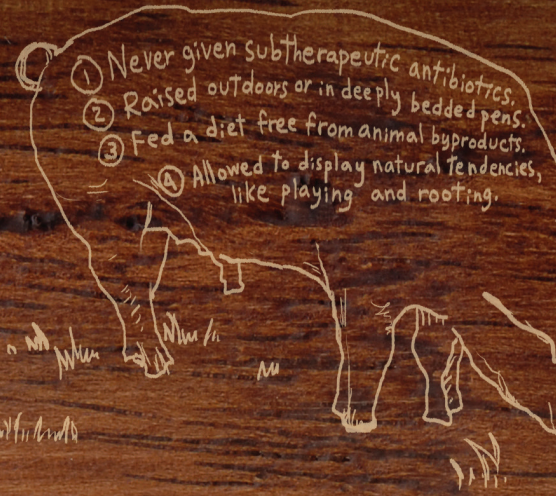 ① Never given subtherapeutic antibiotics.
② Raised outdoors or in deeply bedded pens.
③ Fed a diet free from animal byproducts.
④ Allowed to display natural tendencies,
like playing and rooting.